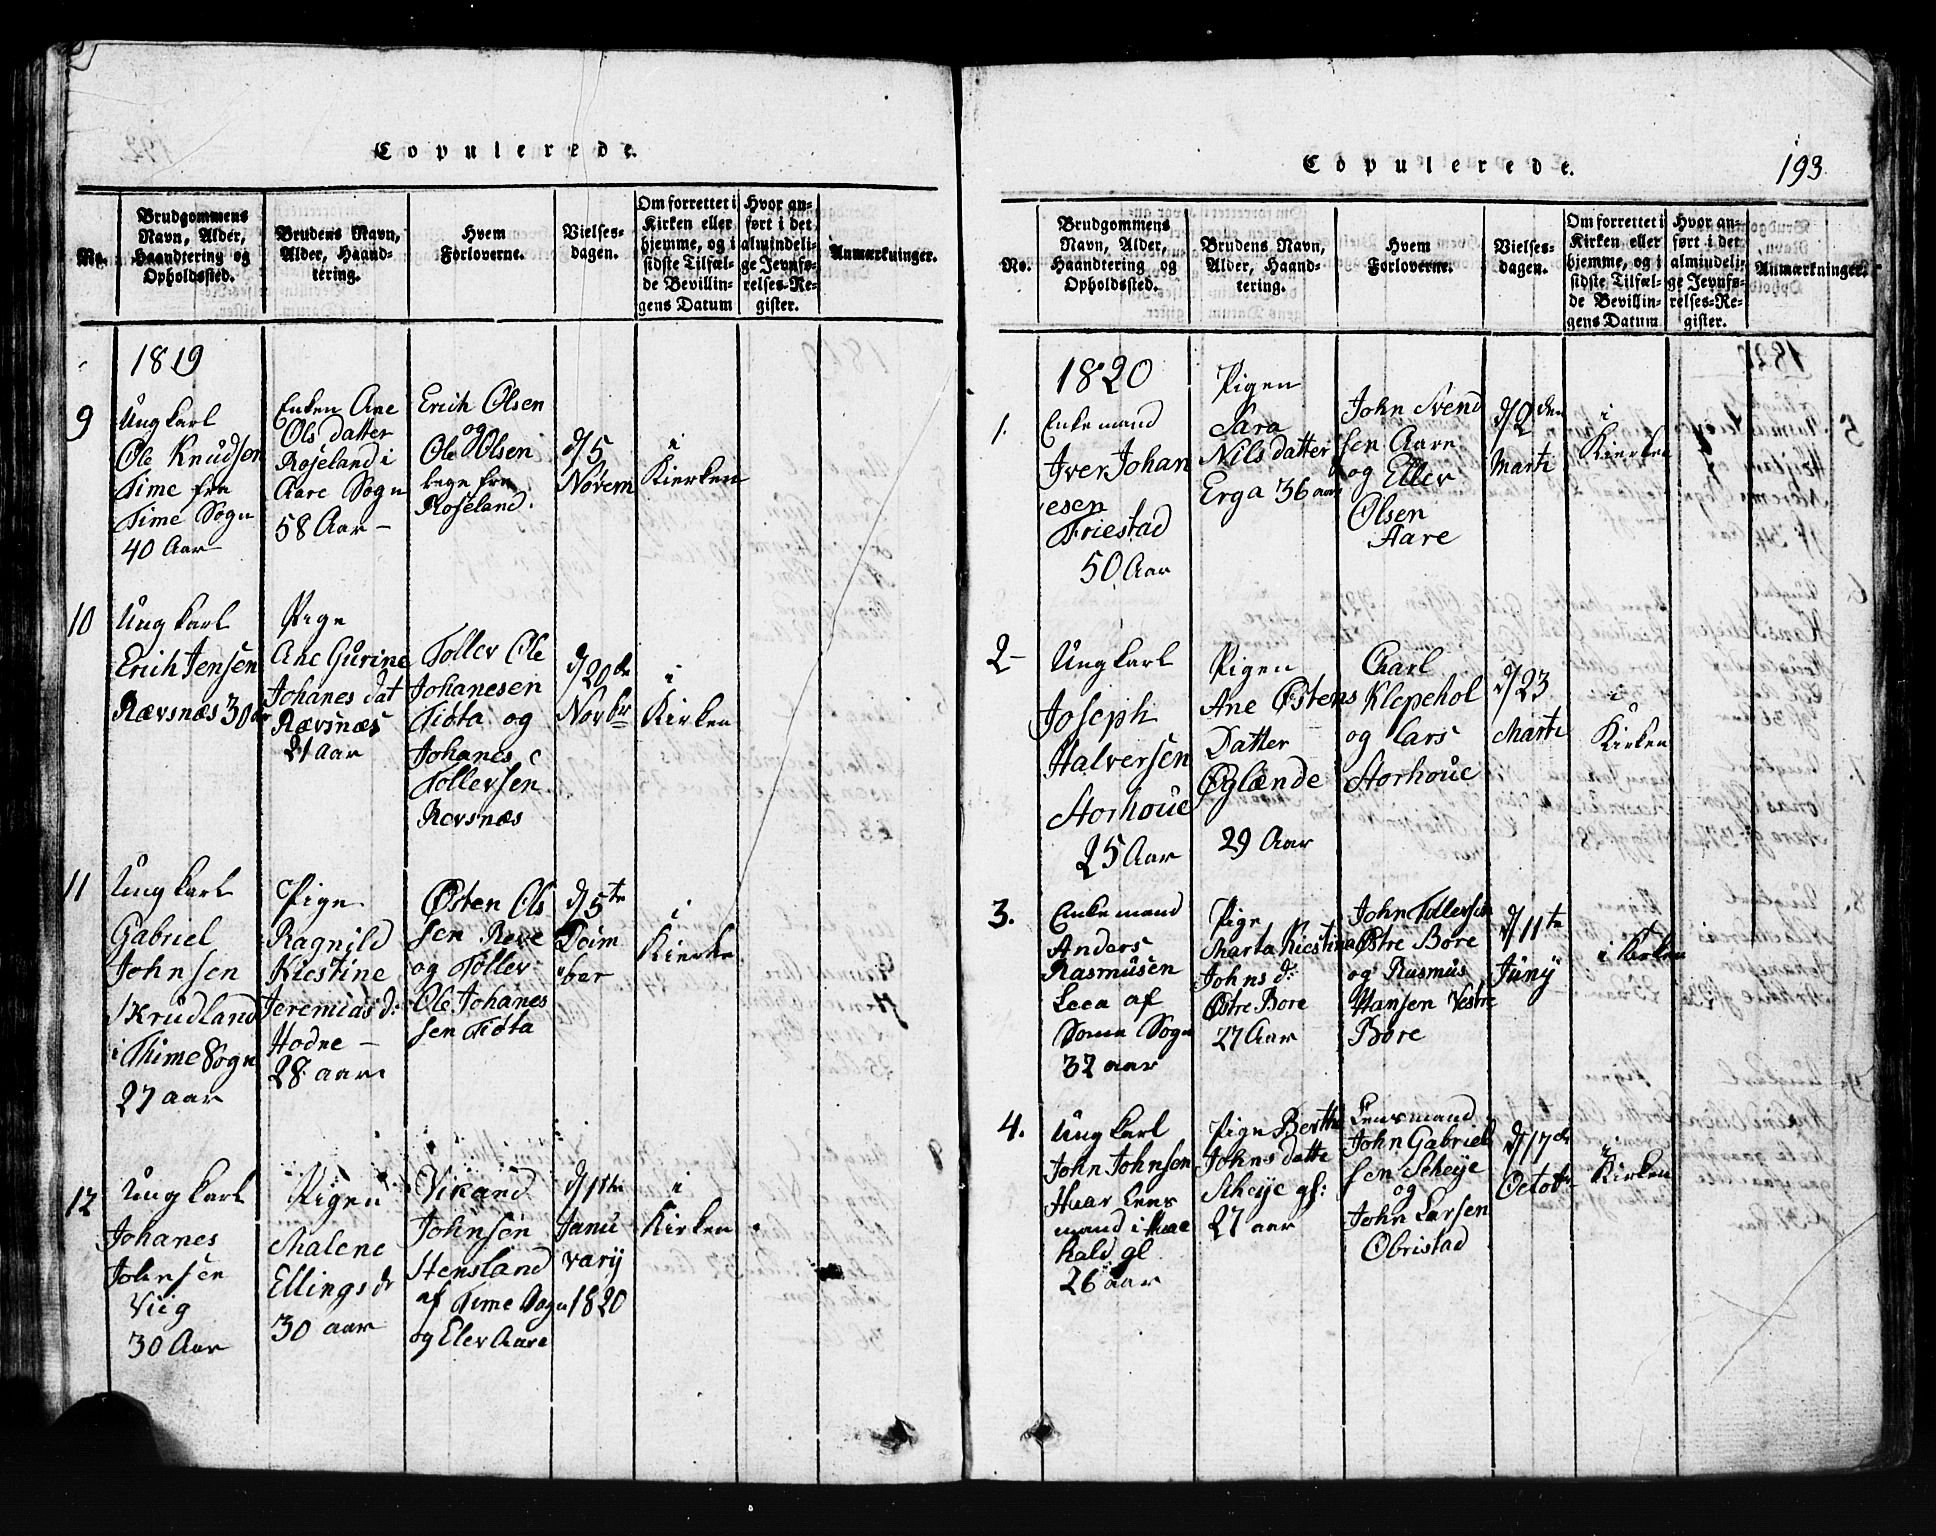 Copulerede.
No.
Brudgommens
Navn, Alder,
Haandtering og
Opholdssted.
Brudens Navn,
Alder, Haand-
tering.
Hvem
Forloverne.
Vielses-
dagen.
Om forrettet i
Kirken eller
hjemme, og i
sidste Tilfæl-
de Bevillin-
gens Datum
Hvor an-
ført i det
almindeli-
ge Jevnfø-
relses-Re-
gister.
Anmærkninger.
1819
9
Ungkarl
Ole Knudsen
Time fra
Time Sogn
40 Aar
Enken Ane
Ols datter
Roseland i
Aare Sogn
58 Aar
Erich Olsen
og
Ole Olsen
bege fra
Roseland.
d/5
Novem
i
Kierken
10
Ungkarl
Erich Jensen
Rævsnæs 30 aar
Pige
Ane Gurine
Johanes dat
Rævsnæs
21 Aar
Toller Ole
Johanesen
Tiøta og
Johanes
Tollersen
Revsnæs
d/20de
Novbr
i
Kirken
11
Ungkarl
Gabriel
Johnsen
Skrudland
i Thime Sogn
27 aar
Pige
Ragnild
Kiestine
Jeremias d:
Hodne
28 aar
Østen Ols
sen Reve
og Toller
Ole Johanes
sen Tiøta
d/5te
Deim
ber
i
Kierke
12
Ungkarl
Johanes
Johnsen
Viig
30 Aar
Pigen
Malene
Ellings dr
30 aar
Vikand
Johnsen
Hensland
af Time Sogn
og Elev Aare
d/1te
Janu
varij
1820
i
Kirken
Copulerede.
193
No.
Brudgommens
Navn, Alder,
Haandtering og
Opholdssted.
Brudens Navn,
Alder, Haand-
tering.
Hvem
Forloverne.
Vielses-
dagen.
Om forrettet i
Kirken eller
hjemme, og i
sidste Tilfæl-
de Bevillin-
gens Datum
Hvor an-
ført i det
almindeli-
ge Jevnfø-
relses-Re-
gister.
Anmærkninger.
1820
1.
Enkemand
Iver Johan
esen
Friestad
50 Aar
Pigen
Sara
Nils datter
Erga 36 aar
John Svend
sen Aare
og Eller
Olsen
Aare
d/2den
Marti
i
Kierken
2
Ungkarl
Joseph
Halversen
Storhoue
25 Aar
Pigen
Ane Østens
Datter
Øglænde
29 Aar
Carl
Klepehol
og Lars
Storhoue
d/23
Marti
i
Kirken
3.
Enkemand
Anders
Rasmusen
Leea af
Some Sogn
32 aar
Pige
Marta Kiestina
Johns d:
Østre Bore
27 Aar
John Tollersen
Østre Bore
og Rasmus
Hansen Vestre
Bore
d/11te
Junij
i Kirken
4.
Ungkarl
John Johnsen
Haar Lens
mand i Haae
hald gl
26 aar
Pige Berthe
Johns datte
Scheije gl:
27 aar
Lensmand
John Gabriel
sen Scheije
og
John Larsen
Obristad
d/17de
Octobr
i
Kirken